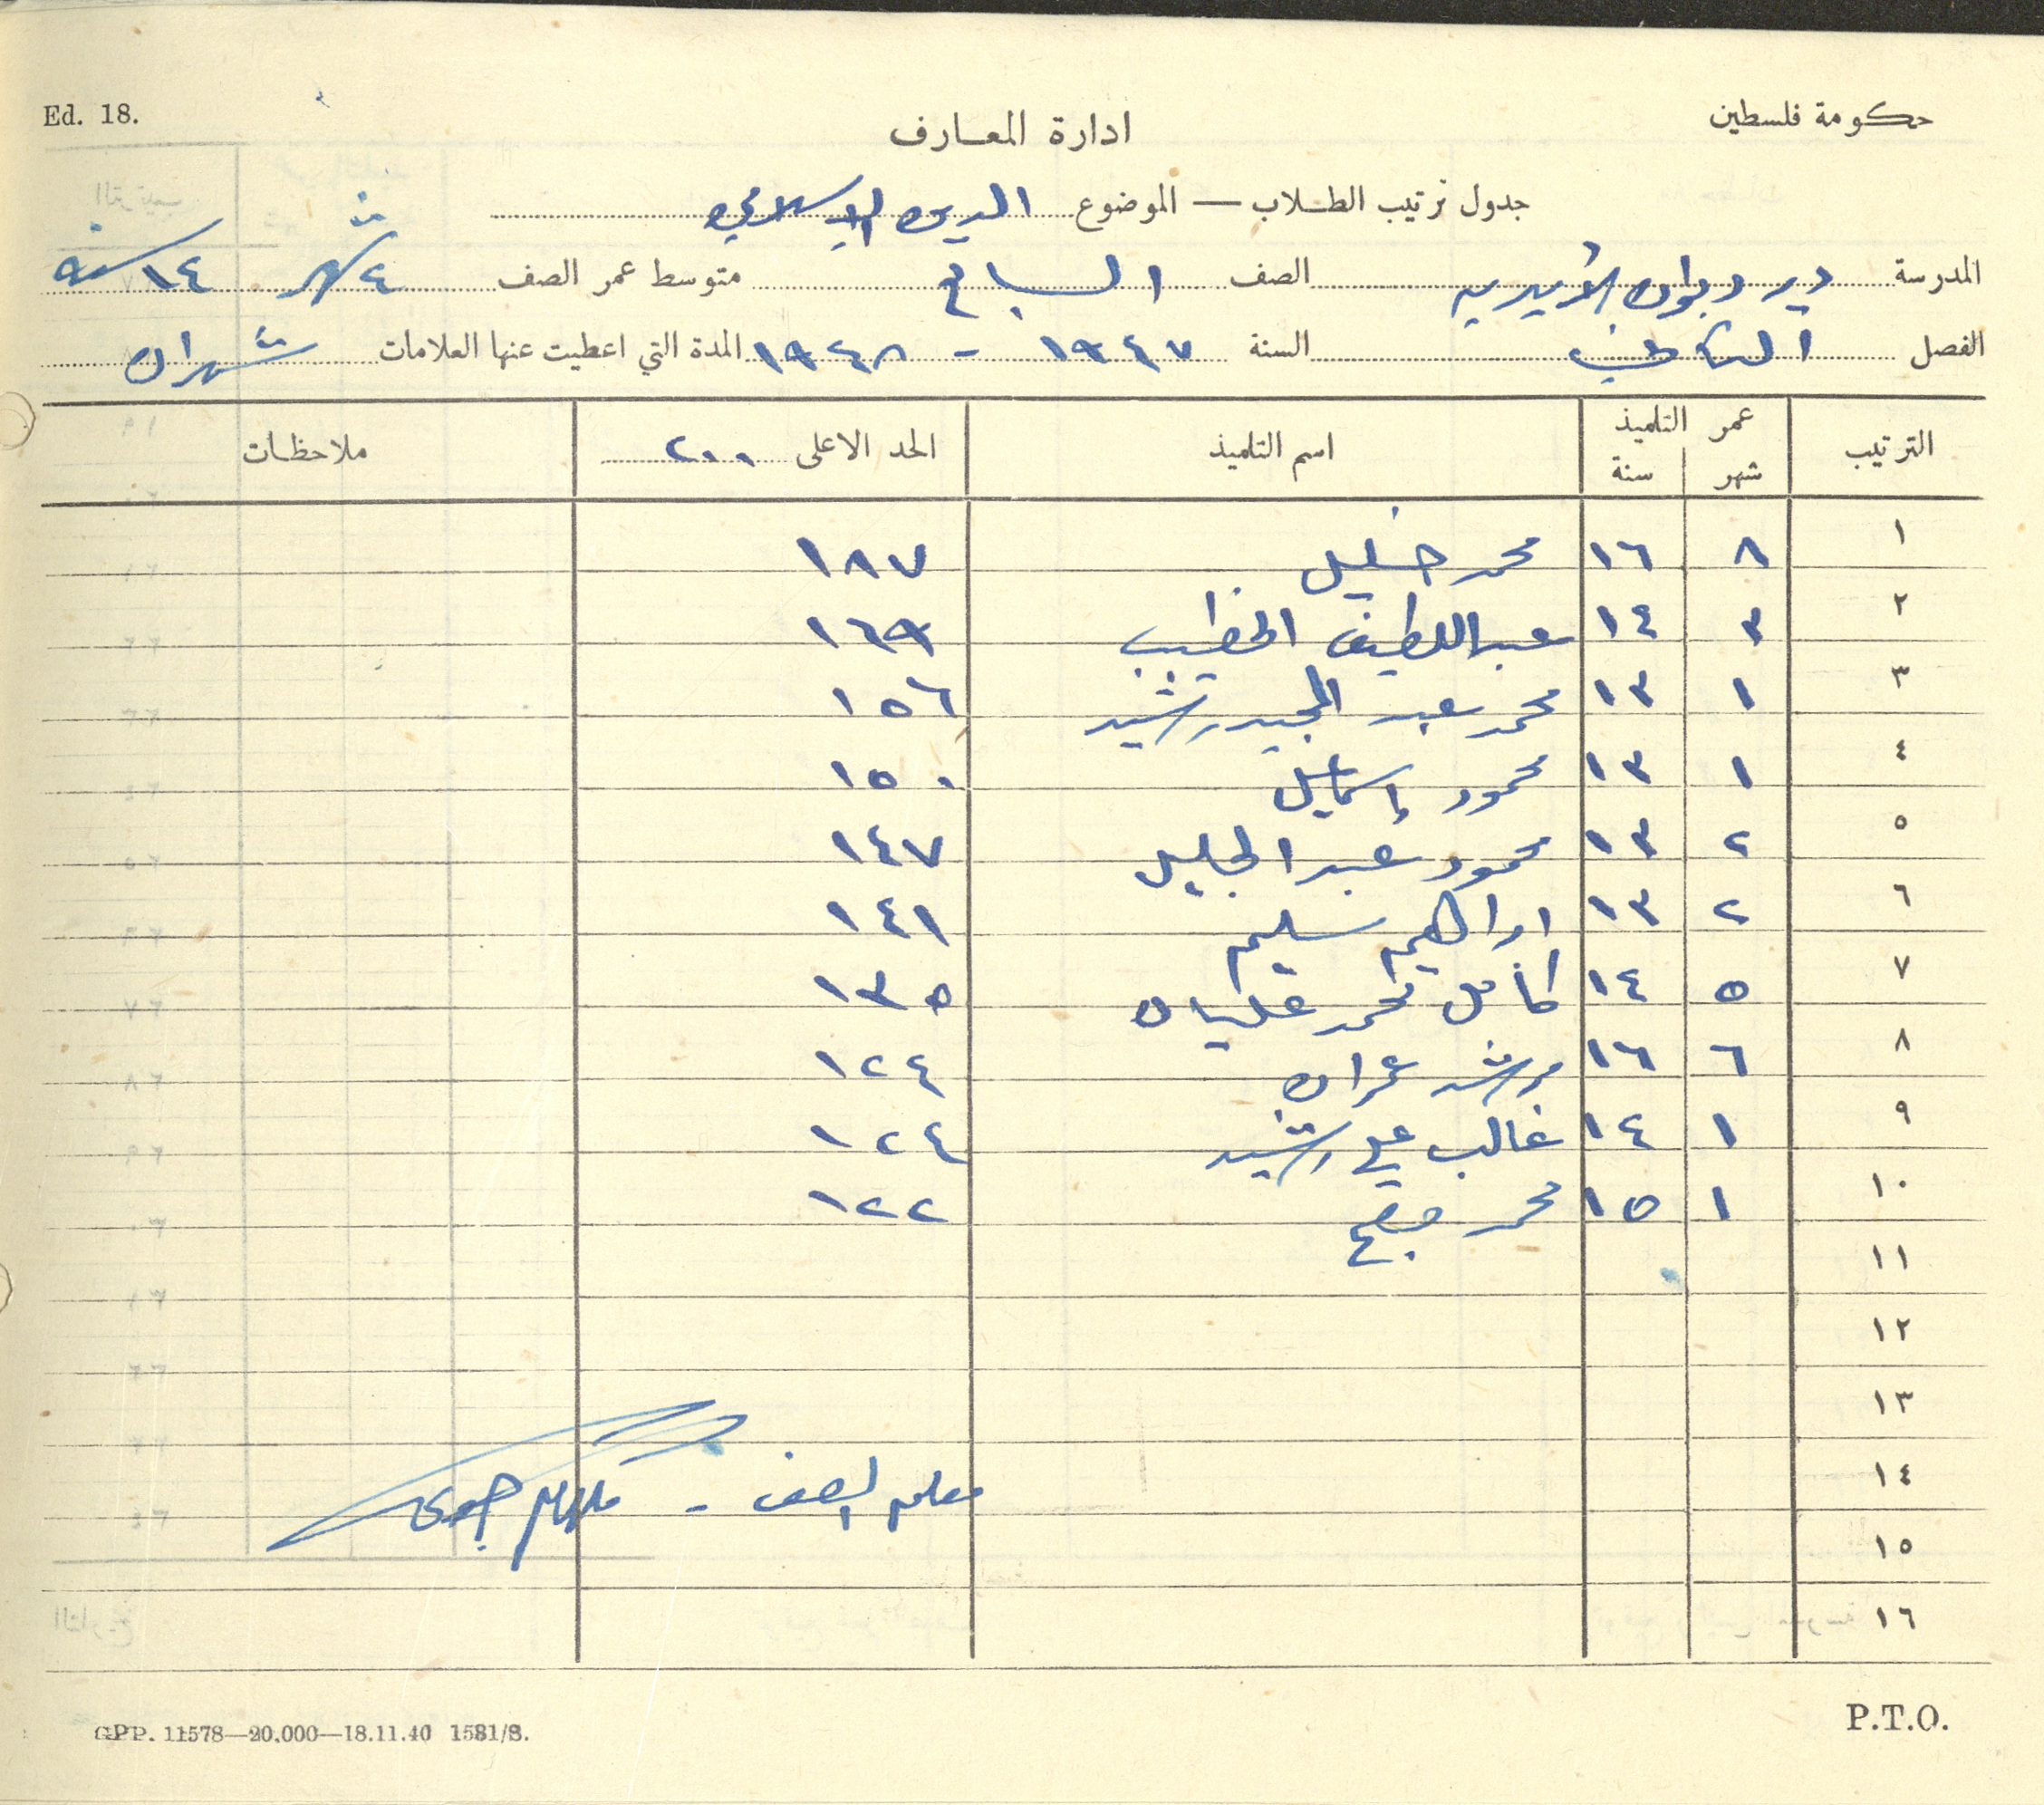 حكومة فلسطين
Ed. 18.
ادارة المعارف
جدول ترتيب الطلاب — الموضوع الدين الإسلامي
المدرسة دير دبوان الأميرية الصف السابع متوسط عمر الصف ٤ شهر ١٤ سنة
الفصل الثاني السنة ١٩٤٧ - ١٩٤٨ المدة التي اعطيت عنها العلامات شهران
الترتيب عمر التلميذ شهر سنة اسم التلميذ الحد الاعلى ٢٠٠ ملاحظات
١ ٨ ١٦ محمد خليل ١٨٧
٢ ٣ ١٤ عبد اللطيف الخطيب ١٦٩
٣ ١ ١٣ محمد عبد المجيد رشيد ١٥٦
٤ ١ ١٣ محمود إسماعيل ١٥٠
٥ ٢ ١٣ محمود عبد الجليل ١٤٧
٦ ٢ ١٣ ابراهيم سليم ١٤١
٧ ٥ ١٤ كامل محمد عليان ١٣٥
٨ ٦ ١٦ مرشد عمران ١٢٤
٩ ١ ١٤ غالب علي رشيد ١٢٤
١٠ ١ ١٥ محمد ١٢٢
١١
١٢
١٣
١٤ معلم الصف -
١٥
١٦
P.T.O.
GPP. 11578—20.000—18.11.40 1581/S.